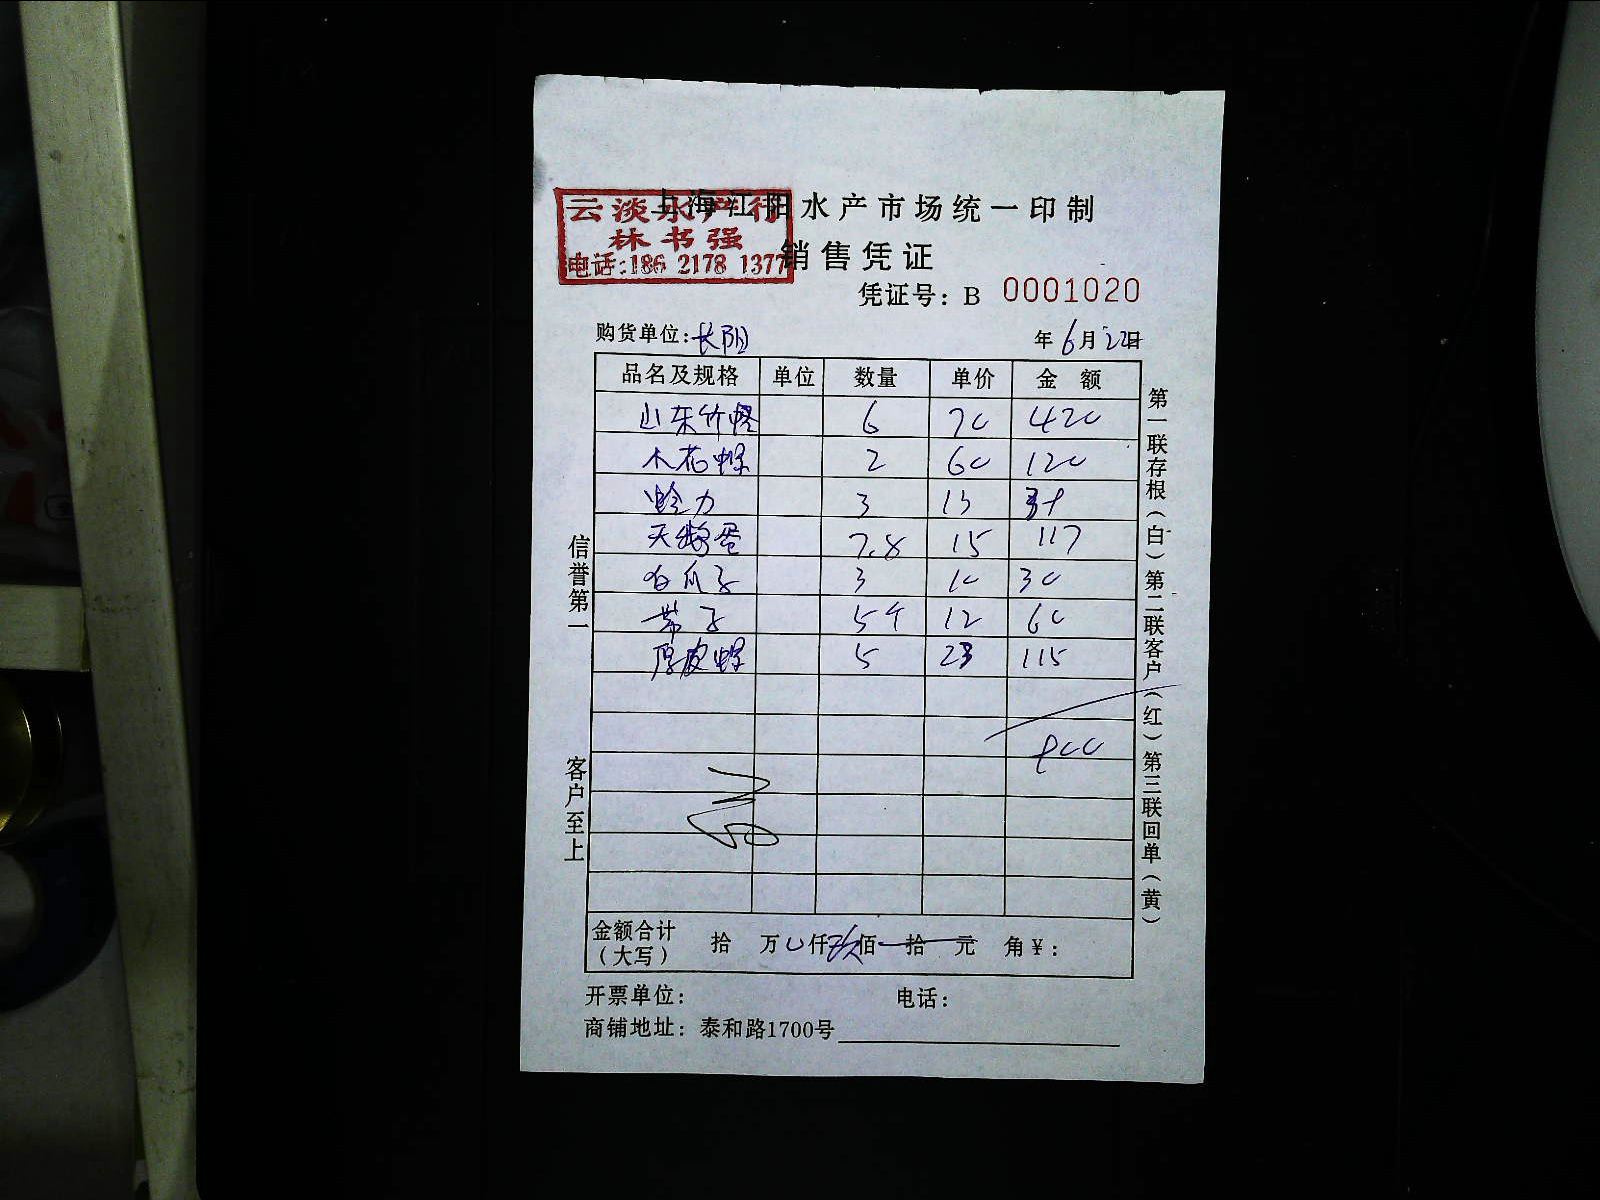 上海江阳水产市场统一印制
云淡水产行
林书强
电话:186 2178 1377
销售凭证
凭证号: B 0001020
购货单位: 长阳 年 6 月 22 日
品名及规格 单位 数量 单价 金 额
山东竹蛏 6 70 420
木花螺 2 60 120
蛤力 3 13 39
天鹅蛋 7.8 15 117
白瓜子 3 10 30
带子 5个 12 60
厚皮螺 5 23 115
900
金额合计(大写) 拾 万 0 仟 玖 佰 拾 元 角 ¥:
开票单位: 电话:
商铺地址: 泰和路1700号
信誉第一
客户至上
第一联存根(白)第二联客户(红)第三联回单(黄)